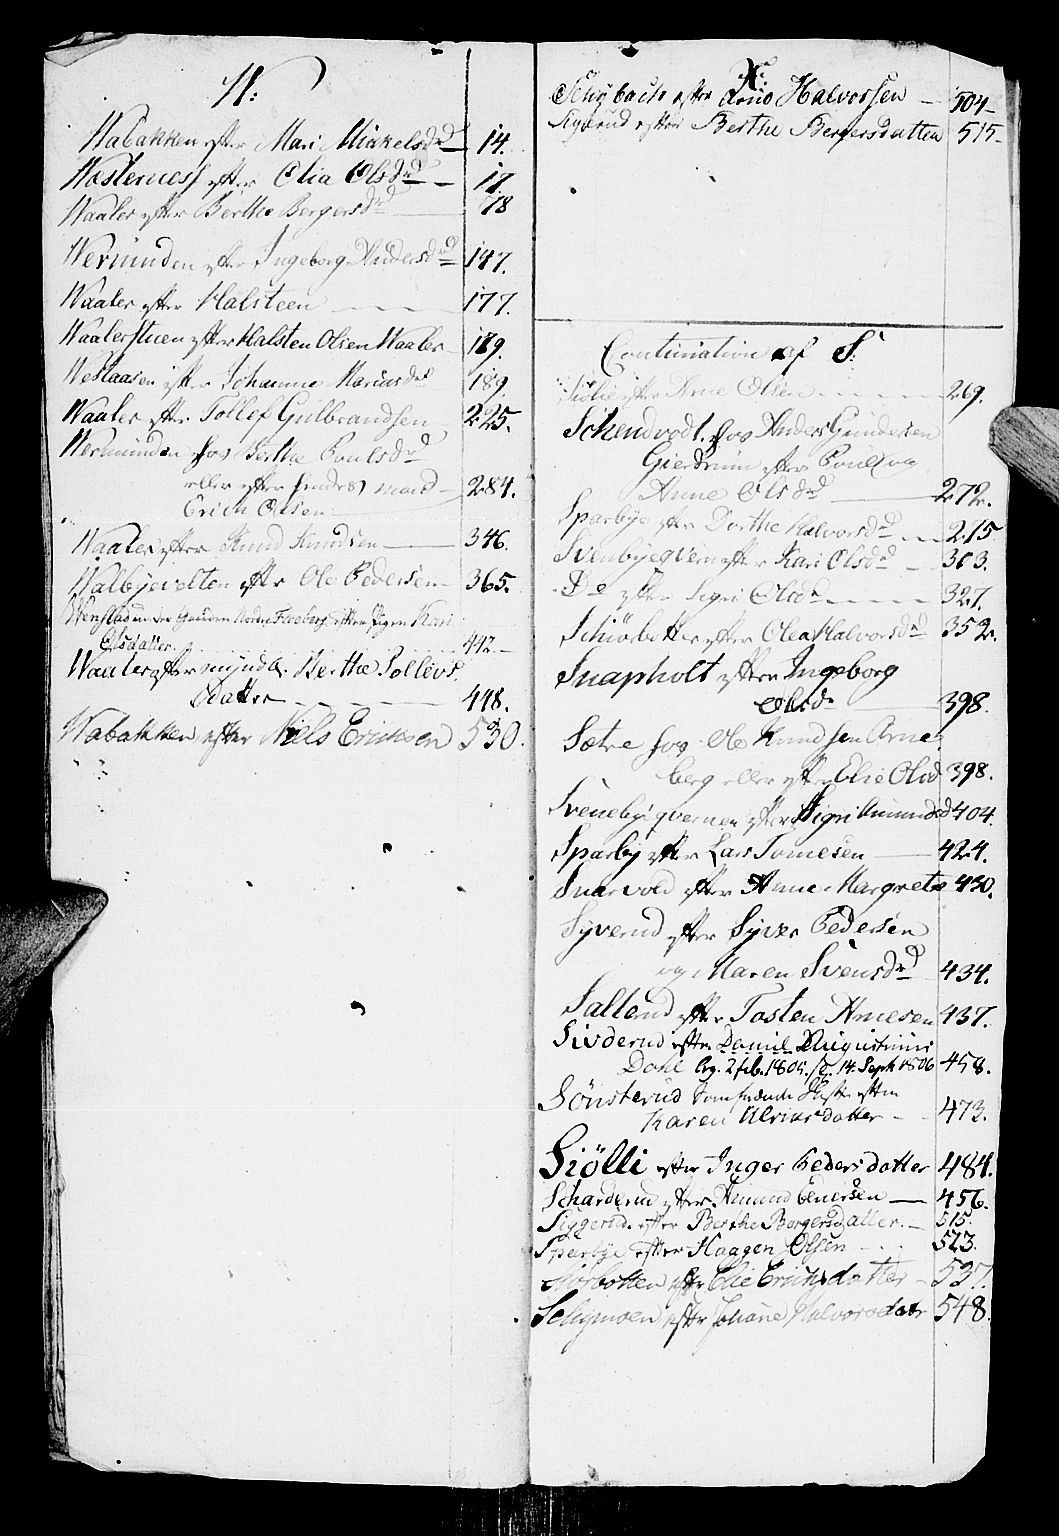 W:
Wabakken efter Mari Mikkelsdr 14.
Wosterness efter Olia Olsdr 17.
Waaler efter Berthe Bergersdr 78
Wermunden efter Ingeborg Andersdr 147.
Waaler efter Halsteen 177.
Waalerstuen efter Halsten Olsen Waaler 189.
Westaasen efter Johanne Mariusdr 189.
Waaler efter Tollef Gulbrandsen 225.
Wermunden hos Bertha Poulsdr
eller efter hendes mand 284.
Erich Olsen
Waaler efter Knud Knudsen 346.
Walbyevolten efter Ole Pedersen 365.
Wenstad under Gaarden Nordre efter Pigen Kari
Olsdatter 447.
Waaler efter myndl. Berthe Tollevs
datter 448.
Wabakken efter Niels Eriksen 530.
X:
Schybach efter Arne Halvorsen 504
Sigerud efter Berthe Bergersdatten 515
Continuation af S:
Siølie efter Arne Olsen 269.
Schendvedt. hos Anders Gundersen
Gierdrum efter Poul og
Anne Olsdr 272.
Sparbye efter Dorthe Halvorsdr 215.
Svenbyeqvern efter Kari Olsdr 303.
Do efter Sigri Olsdr 327.
Schiørbotten efter Olea Halvorsdr 352.
Snapholt efter Ingeborg
Olsdr 398.
Sætre hos Ole Knudsen Arne
berg eller efter Elie Olsd 398.
Svenebyqvernen efter Sigri Amundsd 404.
Sparby efter Lars Tomesen 424.
Snarvold efter Anne Margrete 430.
Syverud efter Syver Pedersen
og Maren Svensdr 434.
Salterud efter Tosten Arnesen 437.
Sivderud efter Daniel Augustinus
Dahl Beg. 2 feb. 1805. 14 Sept 1806 458.
Sønsterud Somfrænde efter
Karen Ulriksdatter 473.
Siølli efter Inger Pedersdatter 484.
Scharderud efter Amund Enersen 456.
Siggerud. efter Berthe Borgersdatter. 515.
Sparbye efter Haagen Olsen 523.
Skiørbotten efter Elie Erichsdatter 537.
Schymoen efter Johanne Halvorsdatr 548.